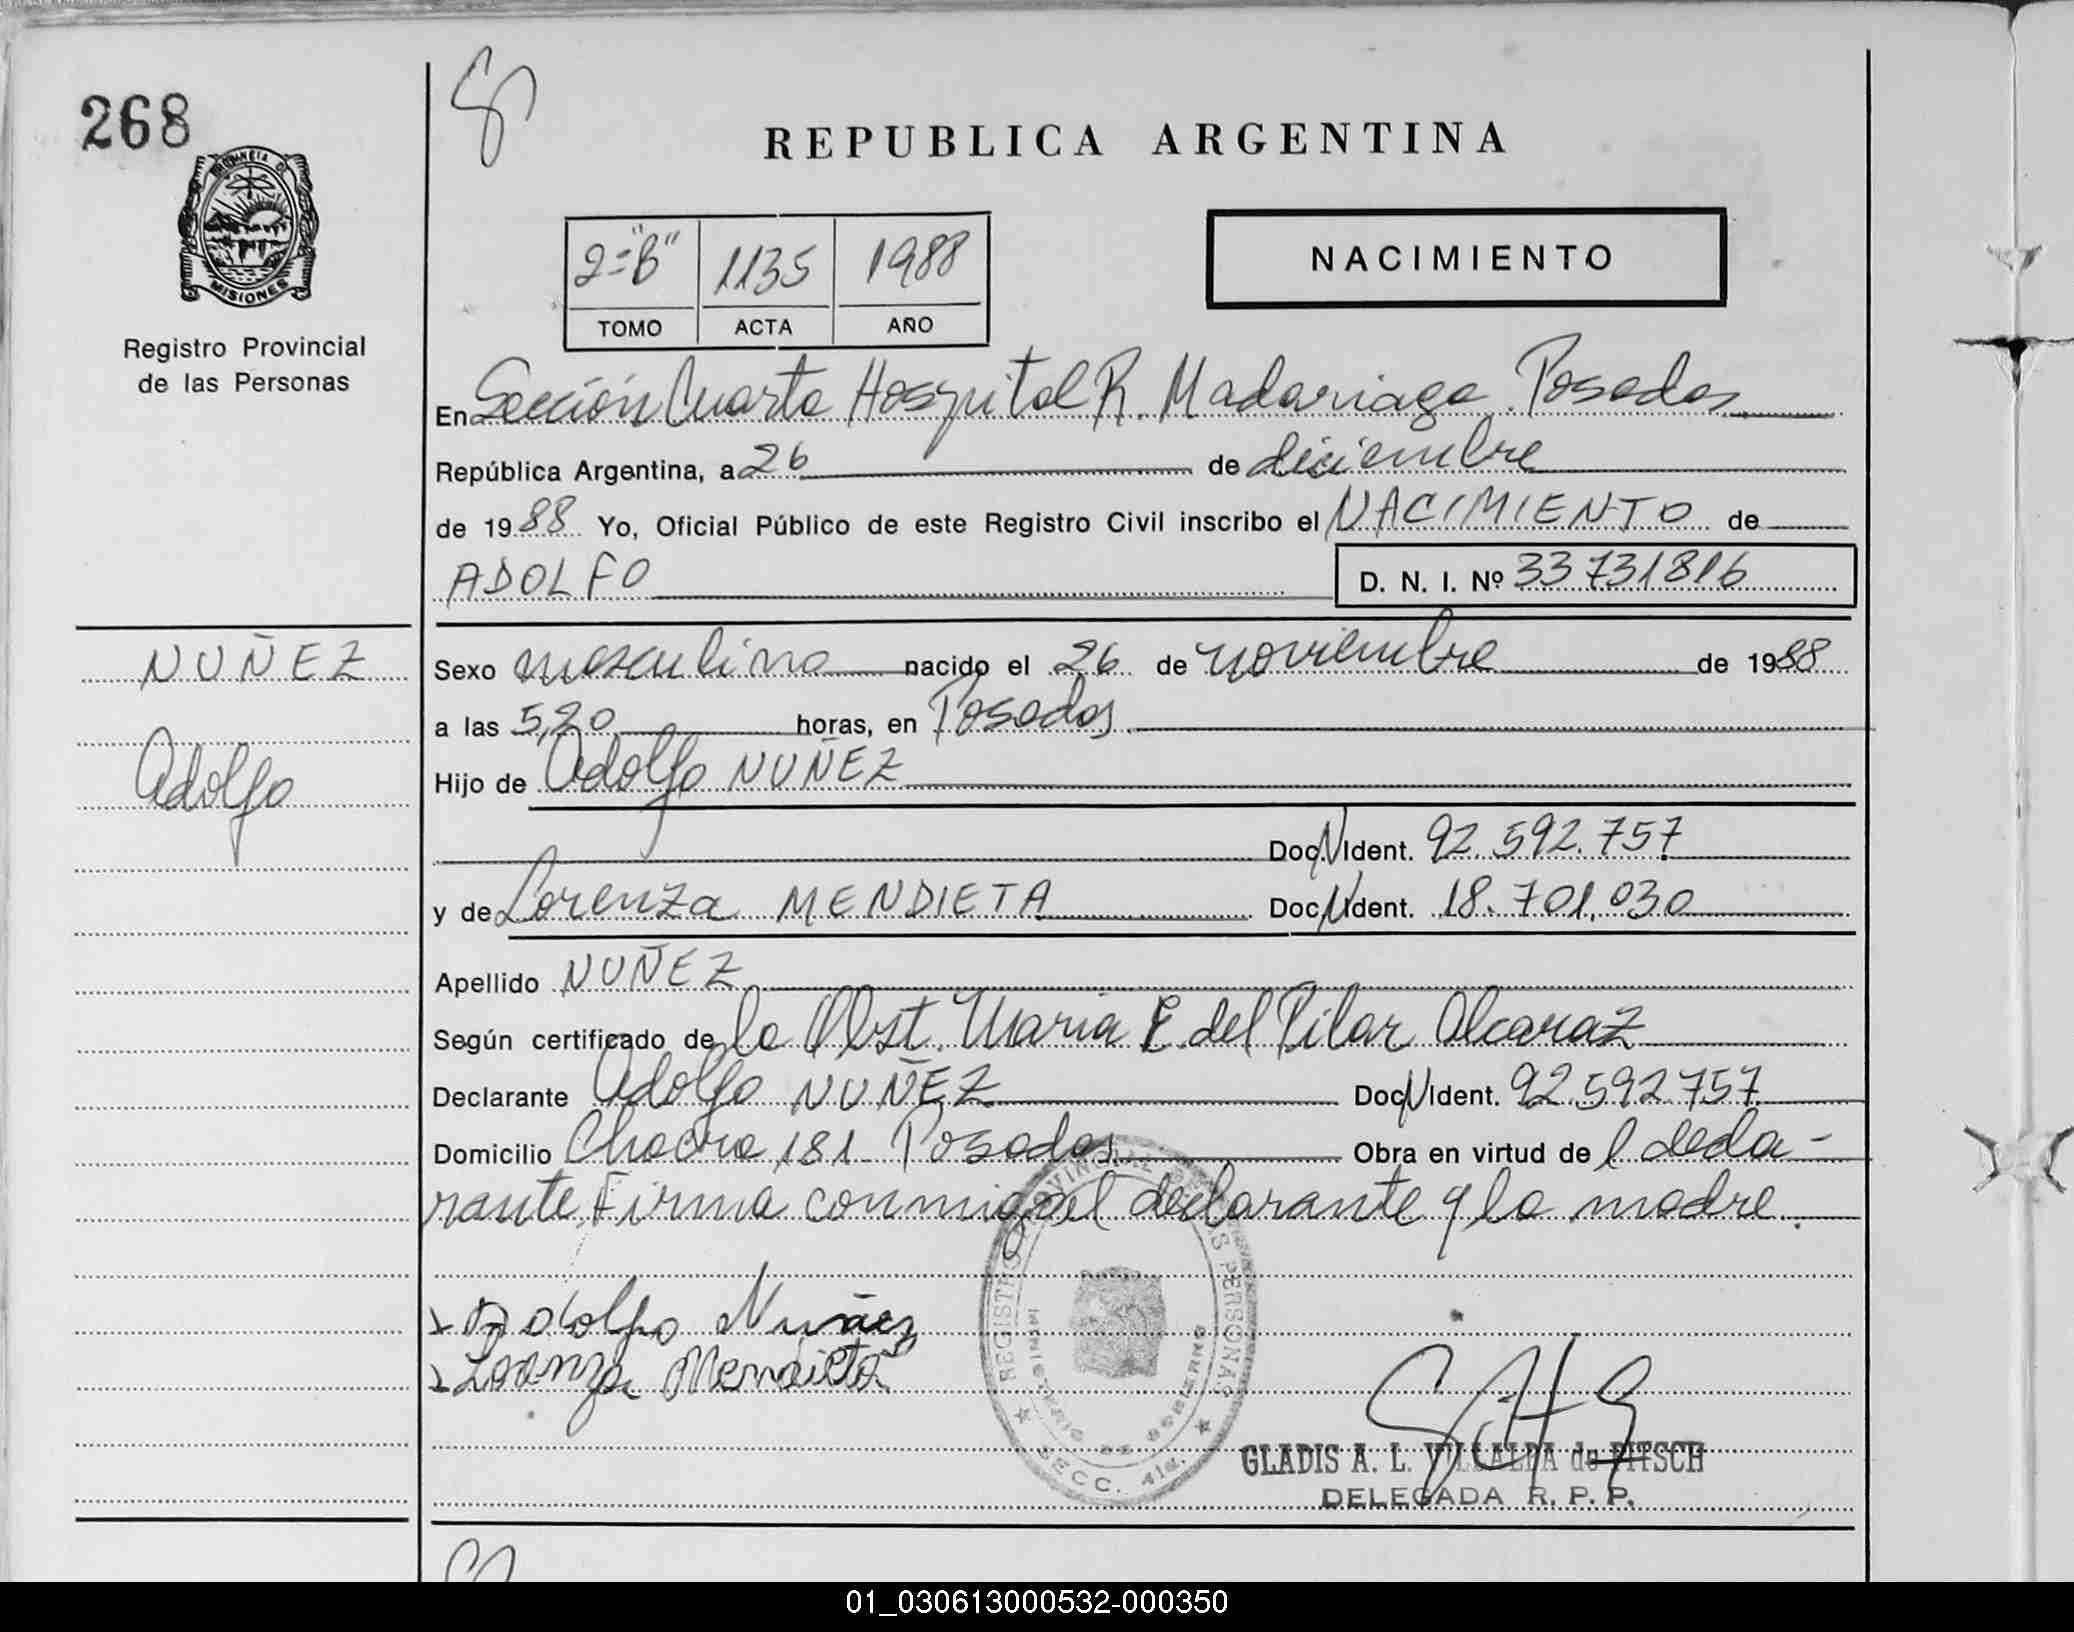 268
PROVINCIA DE
MISIONES
Registro Provincial
de las Personas
REPUBLICA ARGENTINA
2="B" 1135 1988
TOMO ACTA AÑO
NACIMIENTO
En Sección Cuarta Hospital R. Madariaga. Posadas
República Argentina, a 26 de diciembre
de 1988 Yo, Oficial Público de este Registro Civil inscribo el NACIMIENTO de
ADOLFO D. N. I. Nº 33731816
NUÑEZ
Adolfo
Sexo masculino nacido el 26 de noviembre de 1988
a las 5,20 horas, en Posadas
Hijo de Adolfo NUÑEZ
Doc. N Ident. 92.592.757
y de Lorenza MENDIETA Doc. N Ident. 18.701.030
Apellido NUÑEZ
Según certificado de la Obst. Maria E. del Pilar Alcaraz
Declarante Adolfo NUÑEZ Doc. N Ident. 92.592.757
Domicilio Chacra 181 Posadas Obra en virtud de l decla-
rante, Firma conmigo el declarante y la madre.
Adolfo Nuñez
Lorenza Mendieta
REGISTRO PROVINCIAL DE LAS PERSONAS
MINISTERIO DE GOBIERNO
SECC. 4ta.
GLADIS A. L. VILLALBA de PITSCH
DELEGADA R. P. P.
01_030613000532-000350